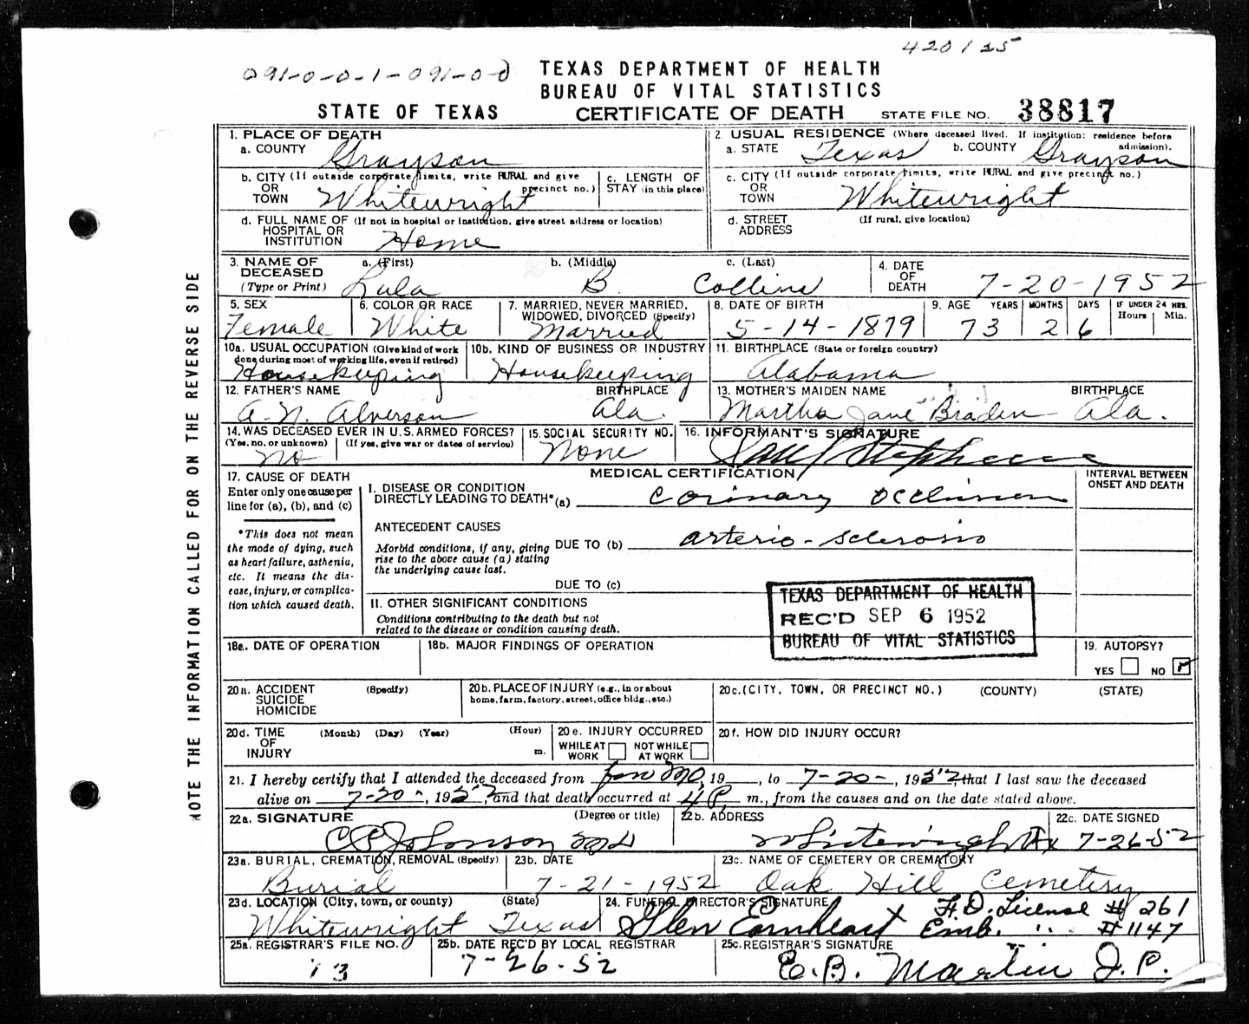 420125
091-0-0-1-091-0-0
TEXAS DEPARTMENT OF HEALTH
BUREAU OF VITAL STATISTICS
STATE OF TEXAS CERTIFICATE OF DEATH STATE FILE NO. 38817
NOTE THE INFORMATION CALLED FOR ON THE REVERSE SIDE
1. PLACE OF DEATH
a. COUNTY Grayson
2. USUAL RESIDENCE (Where deceased lived. If institution: residence before admission).
a. STATE Texas b. COUNTY Grayson
b. CITY (If outside corporate limits, write RURAL and give precinct no.) OR TOWN Whitewright
c. LENGTH OF STAY (in this place)
c. CITY (If outside corporate limits, write RURAL and give precinct no.) OR TOWN Whitewright
d. FULL NAME OF (If not in hospital or institution, give street address or location) HOSPITAL OR INSTITUTION Home
d. STREET ADDRESS (If rural, give location)
3. NAME OF DECEASED (Type or Print)
a. (First) Lula b. (Middle) B. c. (Last) Collins
4. DATE OF DEATH 7-20-1952
5. SEX Female
6. COLOR OR RACE White
7. MARRIED, NEVER MARRIED, WIDOWED, DIVORCED (Specify) Married
8. DATE OF BIRTH 5-14-1879
9. AGE YEARS 73 MONTHS 2 DAYS 6 IF UNDER 24 HRS. Hours Min.
10a. USUAL OCCUPATION (Give kind of work done during most of working life, even if retired) Housekeeping
10b. KIND OF BUSINESS OR INDUSTRY Housekeeping
11. BIRTHPLACE (State or foreign country) Alabama
12. FATHER'S NAME A. N. Alverson BIRTHPLACE Ala.
13. MOTHER'S MAIDEN NAME Martha Jane Braden BIRTHPLACE Ala.
14. WAS DECEASED EVER IN U.S. ARMED FORCES? (Yes, no, or unknown) (If yes, give war or dates of service) No
15. SOCIAL SECURITY NO. None
16. INFORMANT'S SIGNATURE
17. CAUSE OF DEATH
Enter only one cause per line for (a), (b), and (c)
*This does not mean the mode of dying, such as heart failure, asthenia, etc. It means the disease, injury, or complication which caused death.
MEDICAL CERTIFICATION
INTERVAL BETWEEN ONSET AND DEATH
I. DISEASE OR CONDITION DIRECTLY LEADING TO DEATH* (a) Coronary Occlusion
ANTECEDENT CAUSES
Morbid conditions, if any, giving rise to the above cause (a) stating the underlying cause last.
DUE TO (b) arterio-sclerosis
DUE TO (c)
II. OTHER SIGNIFICANT CONDITIONS
Conditions contributing to the death but not related to the disease or condition causing death.
TEXAS DEPARTMENT OF HEALTH
REC'D SEP 6 1952
BUREAU OF VITAL STATISTICS
18a. DATE OF OPERATION
18b. MAJOR FINDINGS OF OPERATION
19. AUTOPSY?
YES NO
20a. ACCIDENT SUICIDE HOMICIDE (Specify)
20b. PLACE OF INJURY (e.g., in or about home, farm, factory, street, office bldg., etc.)
20c. (CITY, TOWN, OR PRECINCT NO.) (COUNTY) (STATE)
20d. TIME OF INJURY (Month) (Day) (Year) (Hour) m.
20e. INJURY OCCURRED
WHILE AT WORK NOT WHILE AT WORK
20f. HOW DID INJURY OCCUR?
21. I hereby certify that I attended the deceased from , 19 , to 7-20-, 1952, that I last saw the deceased
alive on 7-20-, 1952, and that death occurred at 4 P. m., from the causes and on the date stated above.
22a. SIGNATURE (Degree or title) C C Johnson MD
22b. ADDRESS Whitewright Tx
22c. DATE SIGNED 7-26-52
23a. BURIAL, CREMATION, REMOVAL (Specify) Burial
23b. DATE 7-21-1952
23c. NAME OF CEMETERY OR CREMATORY Oak Hill Cemetery
23d. LOCATION (City, town, or county) (State) Whitewright Texas
24. FUNERAL DIRECTOR'S SIGNATURE Glen Earnheart F.D. License # 261
Emb. " " # 1147
25a. REGISTRAR'S FILE NO. 13
25b. DATE REC'D BY LOCAL REGISTRAR 7-26-52
25c. REGISTRAR'S SIGNATURE E.B. Martin J.P.